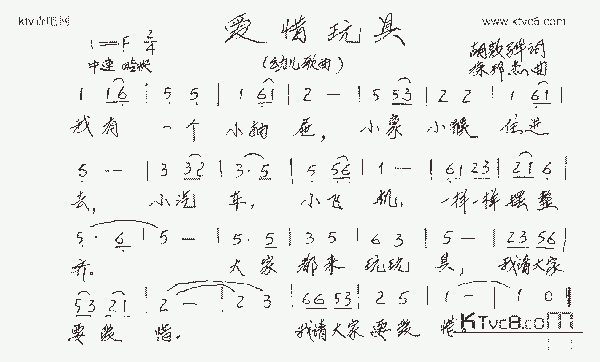 www.ktvc8.com
爱惜玩具
1=F 2/4
中速
(幼儿歌曲)
胡敦骅词
徐邦杰曲
1 16 | 5 5 | 1 61 | 2 — | 5 53 | 2 2 | 1 61 |
我有 一个 小抽屉, 小象 小猴 住进
5 — | 3 32 | 3·5 | 5 56 | 1 — | 61 23 | 21 6 |
去, 小汽车, 小飞机, 一样一样摆整
5· 6 | 5 — | 5·5 | 3 5 | 6 3 | 5 — | 23 56 |
齐。 大家都来玩玩具, 我请大家
53 21 | 2 — | 2 3 | 66 53 | 2 5 | 1 — | 1 0 ‖
要爱惜。 我请大家要爱惜。
KTvc8.com